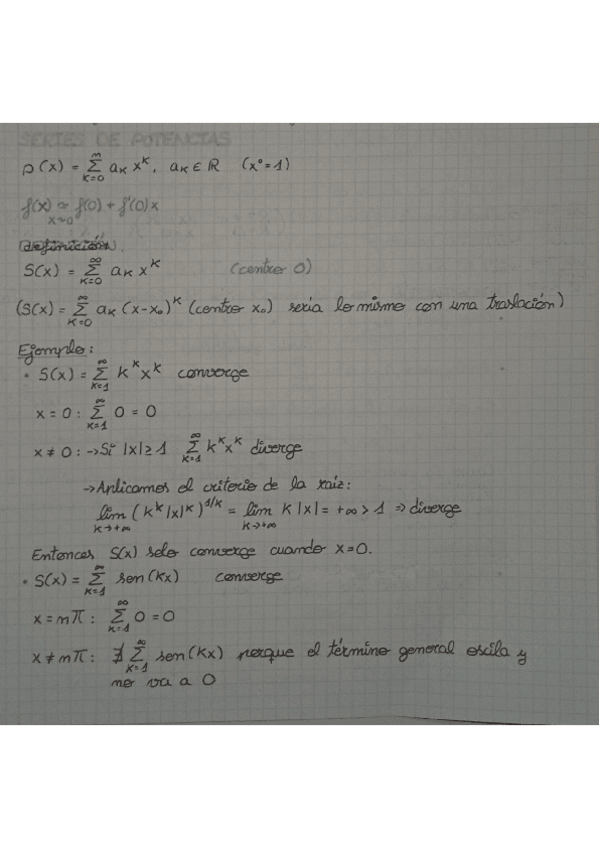 SERIES DE POTENCIAS
p(x) = ∑_{k=0}^{n} aₖ xᵏ, aₖ ∈ ℝ (x⁰=1)
f(x) ≃_{x∼0} f(0) + f'(0)x
definición.
S(x) = ∑_{k=0}^{∞} aₖ xᵏ (centro 0)
(S(x) = ∑_{k=0}^{∞} aₖ (x-x₀)ᵏ (centro x₀) sería lo mismo con una traslación)
Ejemplo:
• S(x) = ∑_{k=1}^{∞} kᵏxᵏ converge
x = 0 : ∑_{k=1}^{∞} 0 = 0
x ≠ 0 : → Si |x| ≥ 1 ∑_{k=1}^{∞} kᵏxᵏ diverge
→ Aplicamos el criterio de la raíz:
lim_{k→+∞} (kᵏ|x|ᵏ)^{1/k} = lim_{k→+∞} k|x| = +∞ > 1 ⇒ diverge
Entonces S(x) solo converge cuando x=0.
• S(x) = ∑_{k=1}^{∞} sen(kx) converge
x = mπ : ∑_{k=1}^{∞} 0 = 0
x ≠ mπ : ∄ ∑_{k=1}^{∞} sen(kx) porque el término general oscila y
no va a 0